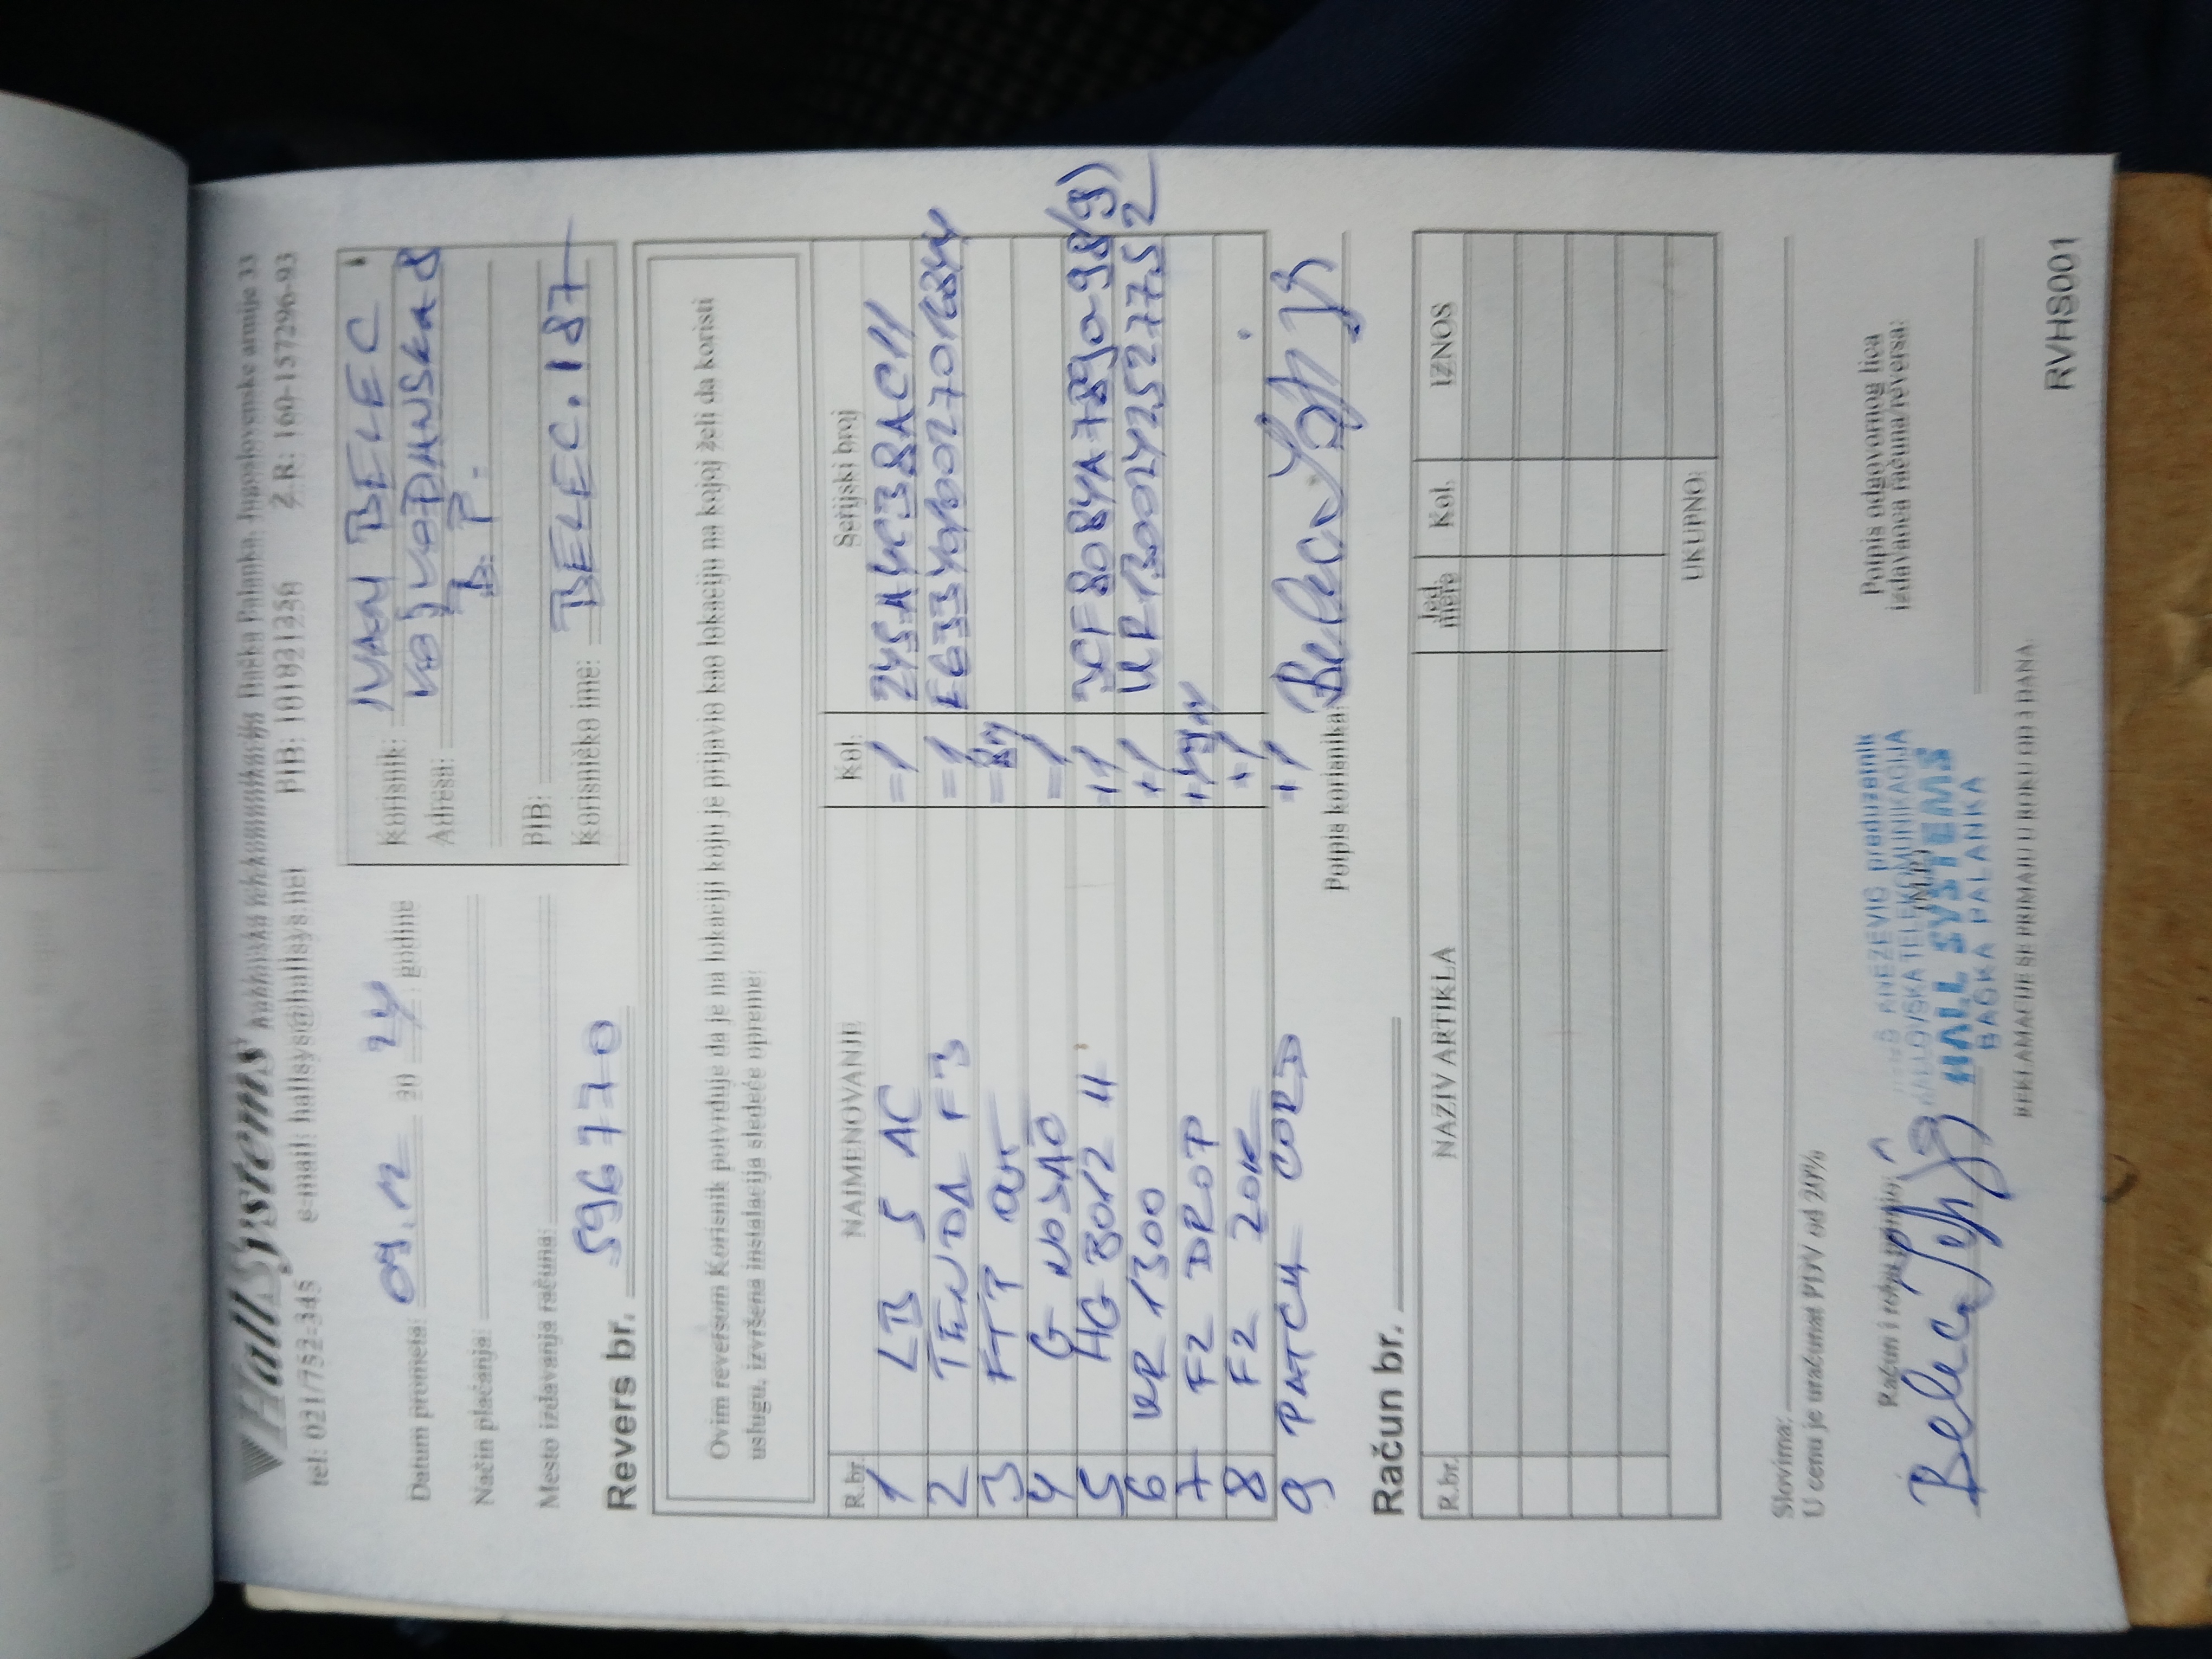 HallSystems kablovska telekomunikacija Bačka Palanka, Jugoslovenske armije 33
tel: 021/752-345 e-mail: hallsys@hallsys.net PIB: 101921236 Ž.R: 160-157296-93
Datum prometa: 09.12 20 24 godine
Način plaćanja:
Mesto izdavanja računa:
Korisnik: IVAN BELEC
Adresa: VOJVODJANSKA 8
B.P.
PIB:
Korisničko ime: BELEC.187
Revers br. 596770
Ovim reversom Korisnik potvrđuje da je na lokaciji koju je prijavio kao lokaciju na kojoj želi da koristi
uslugu, izvršena instalacija sledeće opreme:
R.br. NAIMENOVANJE Kol. Serijski broj
1 LB 5 AC =1 245A4CB8AC11
2 TENDA F3 =1
3 FTP
4 G NOSAČ =1
5 HG 8012 H +1
6 KR 1300 +1
7 F2 DROP
8 F2 ZOK +1
9 PATCH CORD +1
Potpis korisnika:
Račun br.
R.br. NAZIV ARTIKLA Jed. mere Kol. IZNOS
UKUPNO:
Slovima:
U cenu je uračunat PDV od 20%
Račun i robu primio:
(M.P.)
Potpis odgovornog lica
izdavaoca računa/reversa:
KNEŽEVIĆ preduzetnik
KABLOVSKA TELEKOMUNIKACIJA
HALL SYSTEMS
BAČKA PALANKA
REKLAMACIJE SE PRIMAJU U ROKU OD 3 DANA
RVHS001